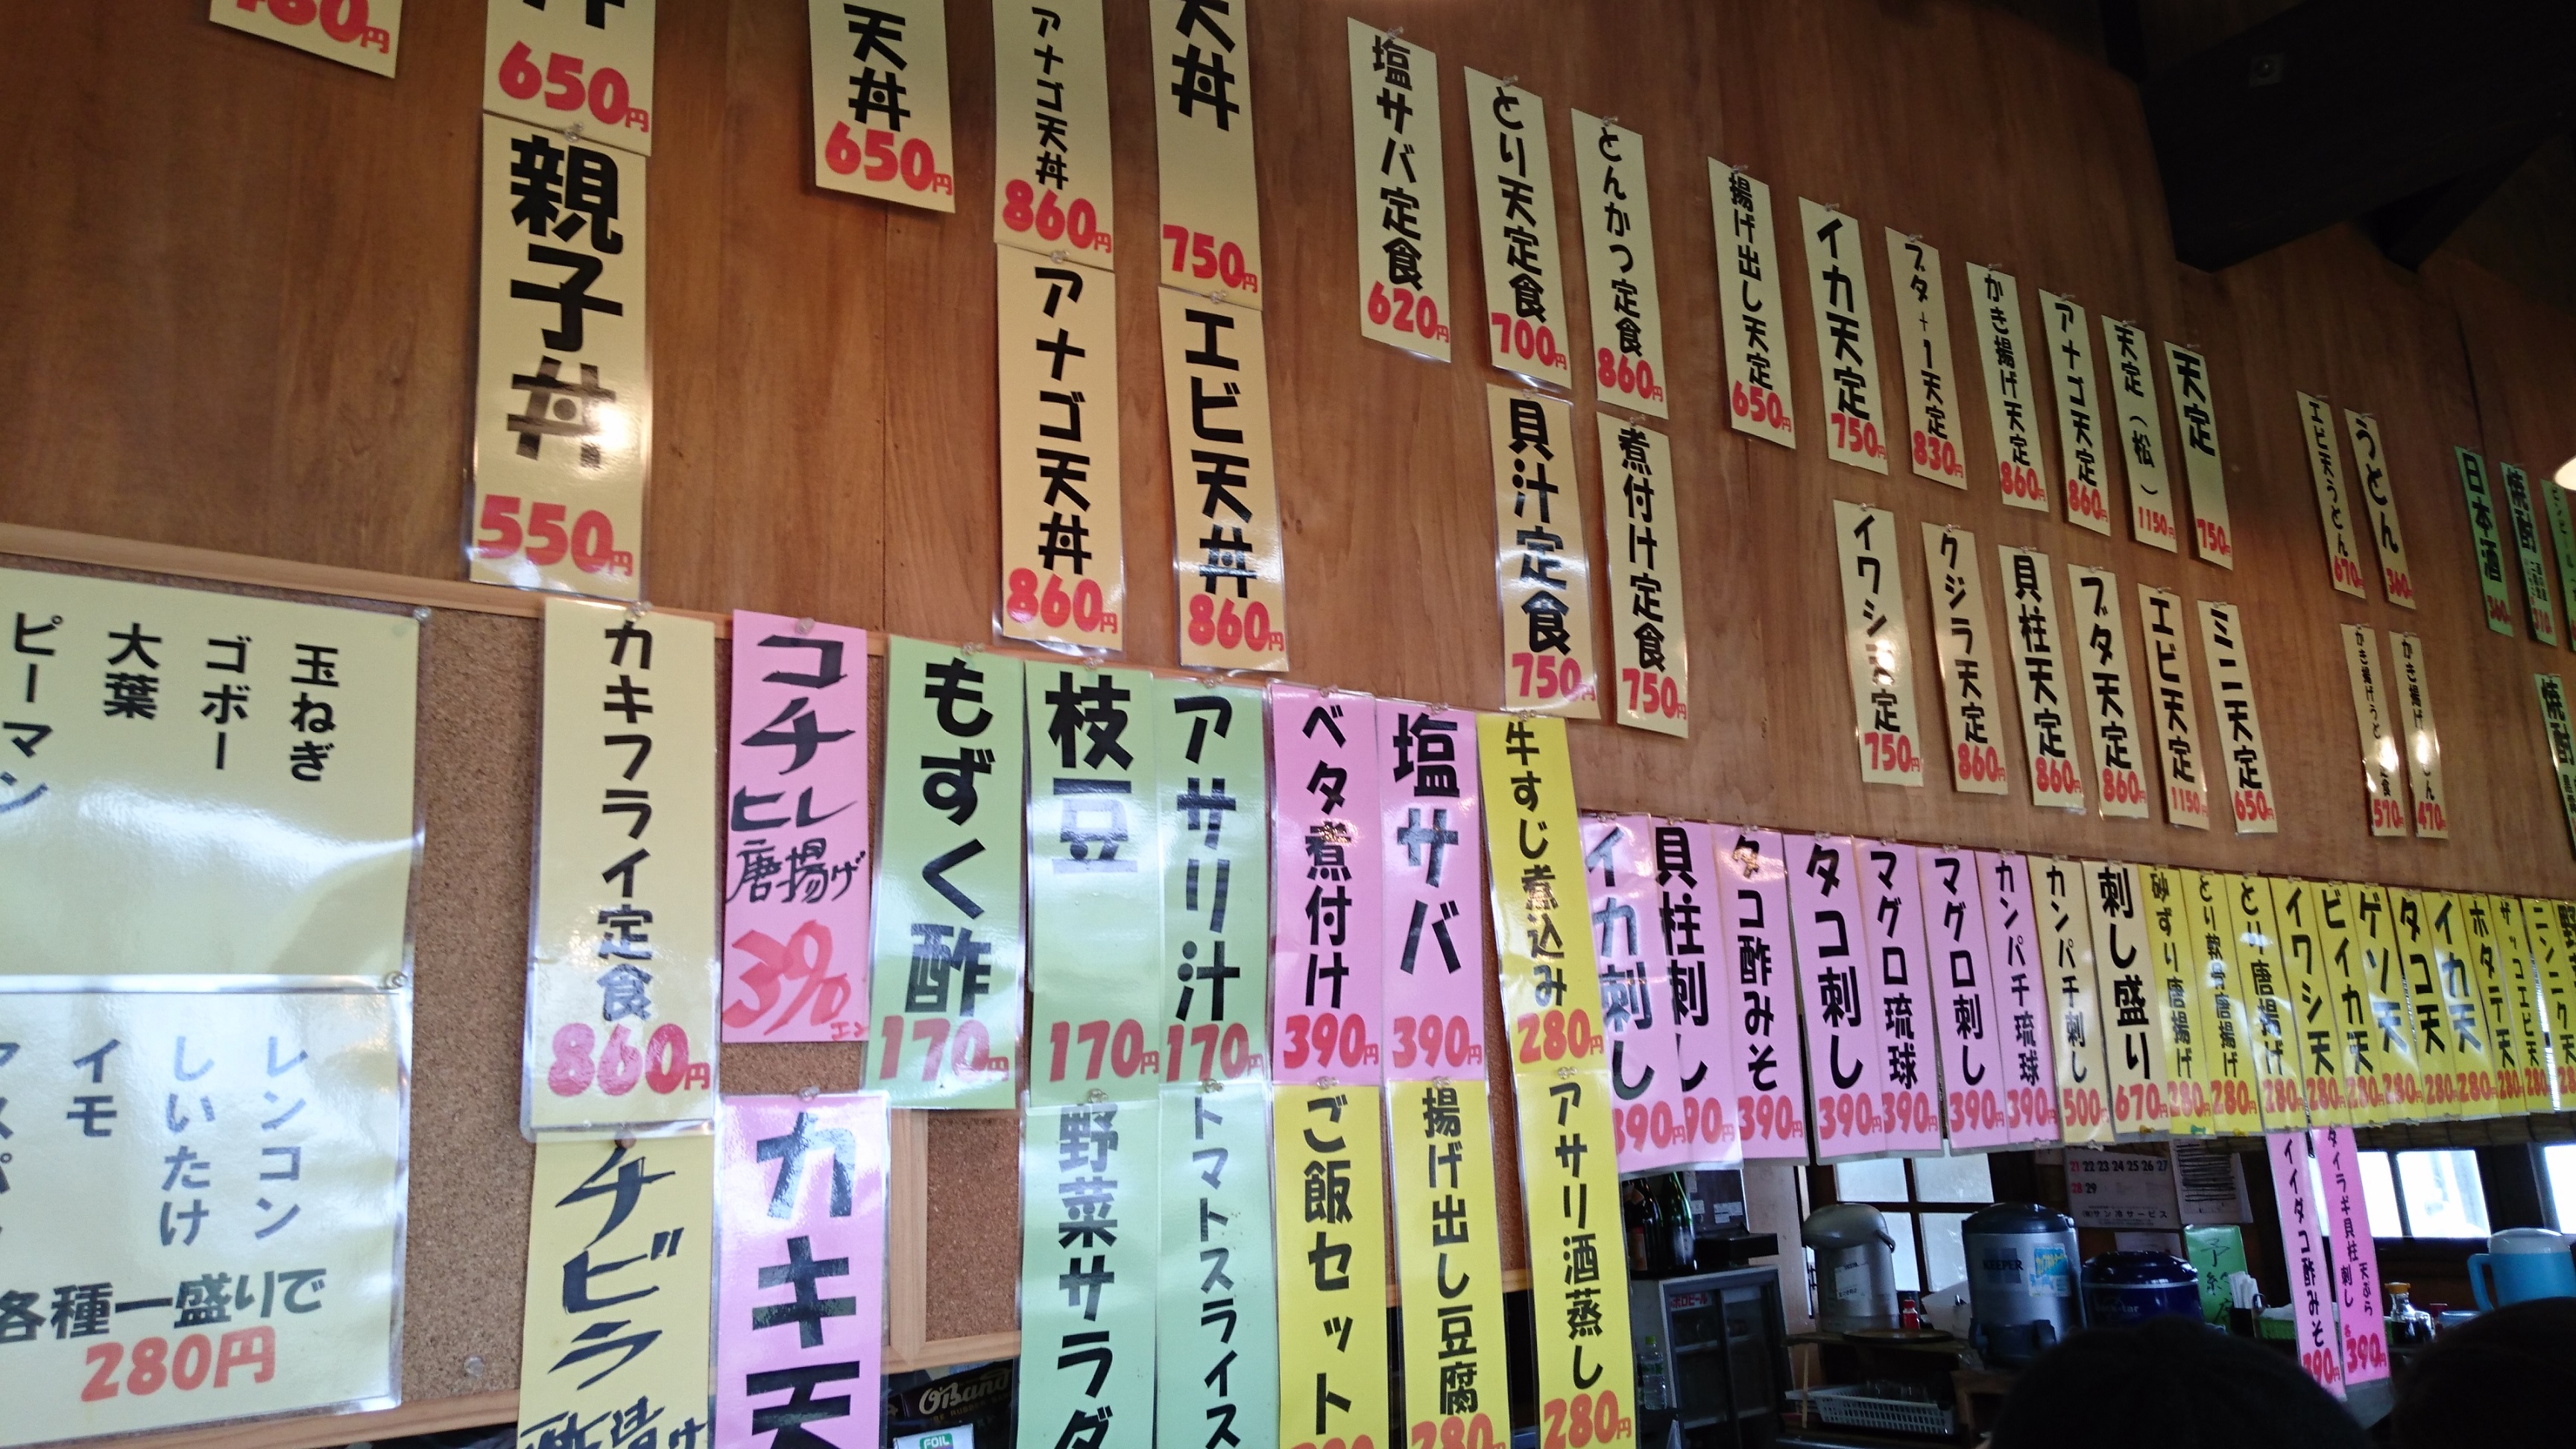 650円
親子丼
550円
天丼
650円
アナゴ天丼
860円
アナゴ天丼
860円
天丼
750円
エビ天丼
860円
塩サバ定食
620円
とり天定食
700円
貝汁定食
750円
とんかつ定食
860円
煮付け定食
750円
揚げ出し天定
650円
イカ天定
750円
イワシ天定
750円
ブタ+1天定
830円
クジラ天定
860円
かき揚げ天定
860円
貝柱天定
860円
アナゴ天定
860円
ブタ天定
860円
天定(松)
1150円
エビ天定
1150円
天定
750円
ミニ天定
650円
エビ天うどん
670円
うどん
360円
570円
かき揚げうどん
470円
日本酒
360円
焼酎
310円
焼酎
玉ねぎ
ゴボー
大葉
ピーマン
レンコン
しいたけ
イモ
各種一盛りで
280円
カキフライ定食
860円
チビラ
酢漬け
コチ
ヒレ
唐揚げ
390エン
カキ天
もずく酢
170円
枝豆
170円
野菜サラダ
アサリ汁
170円
トマトスライス
ベタ煮付け
390円
ご飯セット
塩サバ
390円
揚げ出し豆腐
280円
牛すじ煮込み
280円
アサリ酒蒸し
280円
イカ刺し
390円
貝柱刺し
タコ酢みそ
390円
タコ刺し
390円
マグロ琉球
390円
マグロ刺し
390円
カンパチ琉球
390円
カンパチ刺し
500円
刺し盛り
670円
砂ずり唐揚げ
280円
とり軟骨唐揚げ
280円
とり唐揚げ
280円
イワシ天
280円
ビイカ天
280円
ゲソ天
280円
タコ天
280円
イカ天
280円
ホタテ天
280円
ザッコエビ天
280円
ニンニク天
イイダコ酢みそ
390円
タイラギ貝柱
刺し
天ぷら
各390円
21 22 23 24 25 26 27
28 29
KEEPER
O'Band
FOIL